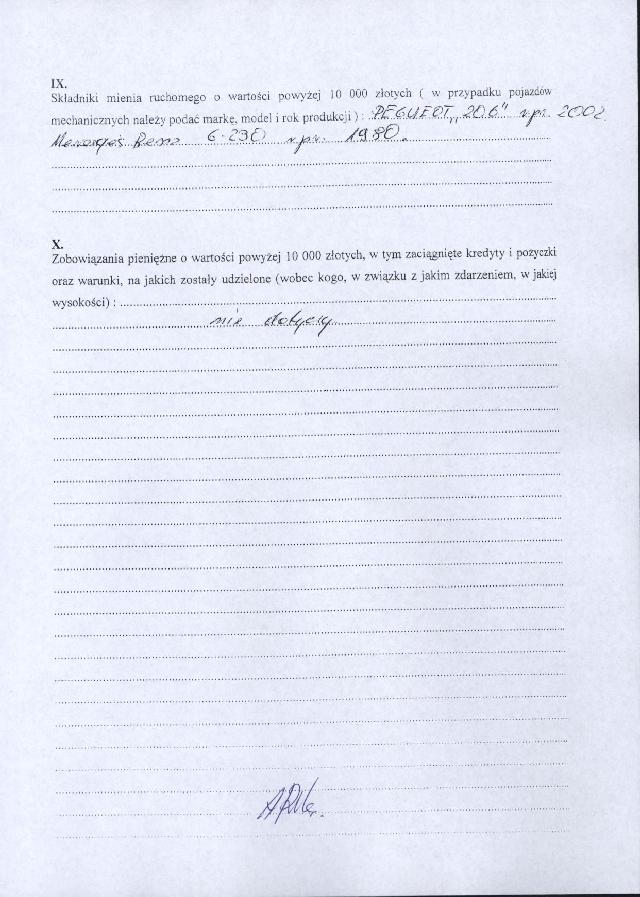 IX.
Składniki mienia ruchomego o wartości powyżej 10 000 złotych ( w przypadku pojazdów
mechanicznych należy podać markę, model i rok produkcji ) : PEGUEOT „206" r.pr. 2002
6-230 r.pr. 1980.
X.
Zobowiązania pieniężne o wartości powyżej 10 000 złotych, w tym zaciągnięte kredyty i pożyczki
oraz warunki, na jakich zostały udzielone (wobec kogo, w związku z jakim zdarzeniem, w jakiej
wysokości) :
nie dotyczy